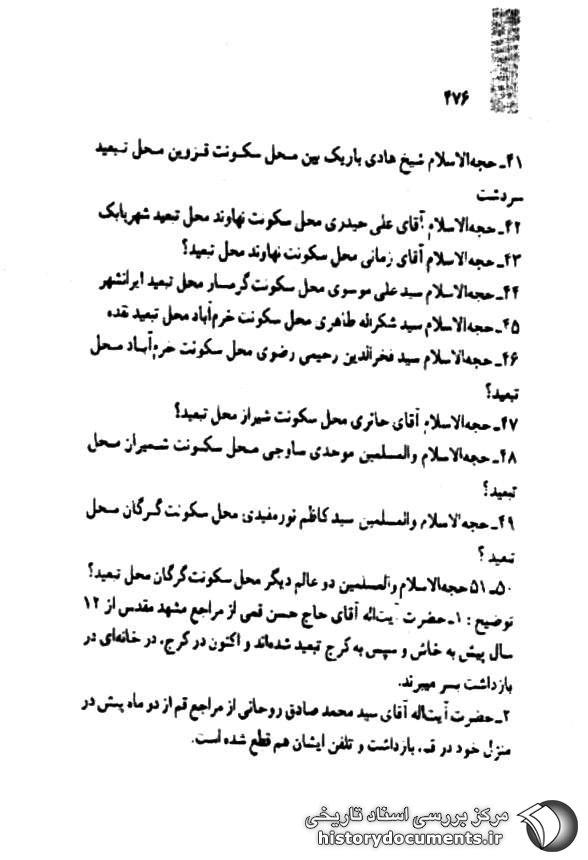 ۴۷۶
۴۱ـ حجه‌الاسلام شیخ هادی باریک بین محل سکونت قزوین محل تبعید
سردشت
۴۲ـ حجه‌الاسلام آقای علی حیدری محل سکونت نهاوند محل تبعید شهربابک
۴۳ـ حجه‌الاسلام آقای زمانی محل سکونت نهاوند محل تبعید؟
۴۴ـ حجه‌الاسلام سید علی موسوی محل سکونت گرمسار محل تبعید ایرانشهر
۴۵ـ حجه‌الاسلام سید شکراله طاهری محل سکونت خرم‌آباد محل تبعید نقده
۴۶ـ حجه‌الاسلام سید فخرالدین رحیمی رضوی محل سکونت خرم‌آباد محل
تبعید؟
۴۷ـ حجه‌الاسلام آقای حائری محل سکونت شیراز محل تبعید؟
۴۸ـ حجه‌الاسلام والمسلمین موحدی ساوجی محل سکونت شمیران محل
تبعید؟
۴۹ـ حجه‌الاسلام والمسلمین سید کاظم نورمفیدی محل سکونت گرگان محل
تبعید ؟
۵۰ـ ۵۱ حجه‌الاسلام والمسلمین دو عالم دیگر محل سکونت گرگان محل تبعید؟
توضیح : ۱ـ حضرت آیت‌اله آقای حاج حسن قمی از مراجع مشهد مقدس از ۱۲
سال پیش به خاش و سپس به کرج تبعید شده‌اند و اکنون در کرج، در خانه‌ای در
بازداشت بسر میبرند.
۲ـ حضرت آیت‌اله آقای سید محمد صادق روحانی از مراجع قم از دو ماه پیش در
منزل خود در قم، بازداشت و تلفن ایشان هم قطع شده است.
مرکز بررسی اسناد تاریخی
historydocuments.ir